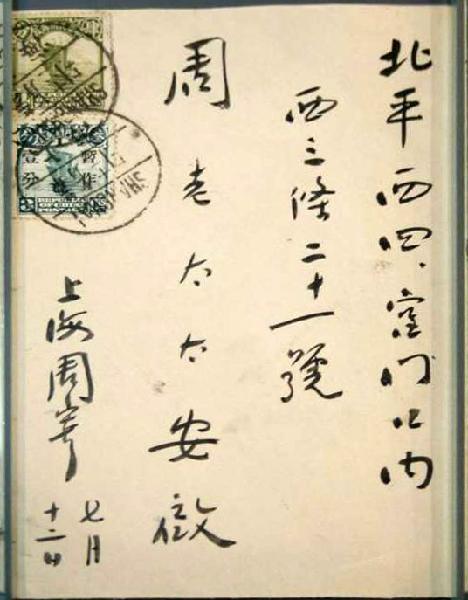 北平西四、宮門口内
西三條二十一號
周老太太安啟
上海周寄
七月
十二日
暫作
壹分